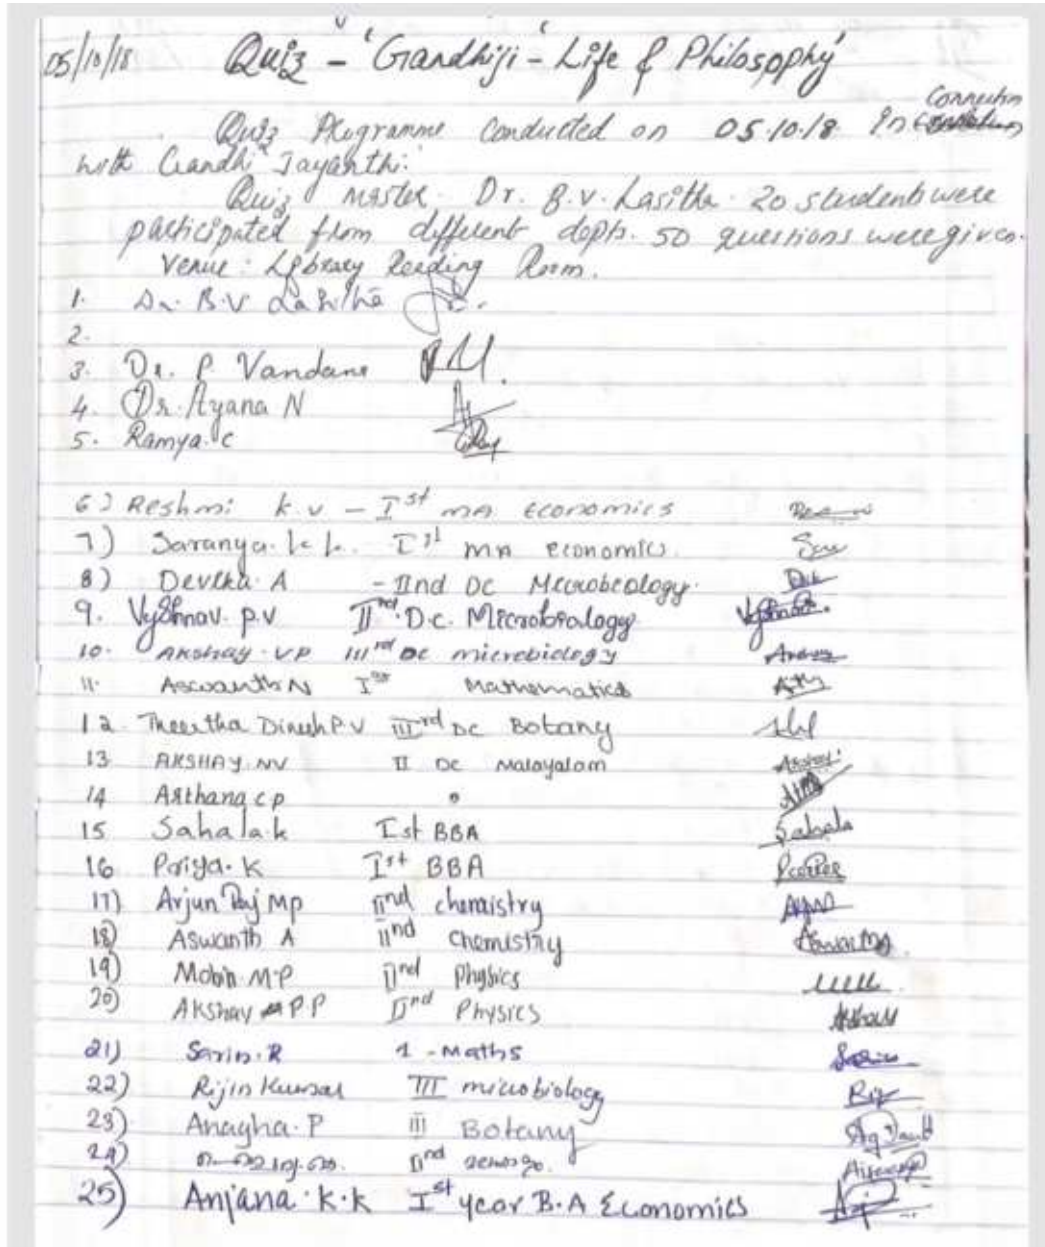 05/10/18 Quiz - 'Gandhiji - Life & Philosophy'
Connection
Quiz Programme Conducted on 05.10.18 In
with Gandhi Jayanthi.
Quiz master. Dr. B.V. Lasitha. 20 students were
participated from different depts. 50 questions were given.
Venue: Library Reading Room.
1. Dr. B.V Lasitha
2.
3. Dr. P. Vandana
4. Dr. Ayana N
5. Ramya. C
6) Reshmi K V - Ist MA Economics
7) Saranya. k k. Ist MA economics.
8) Devika A - IInd DC Microbiology.
9. Vyshnav. P.V IInd D.C. Microbiology Vyshnav.
10. AKSHAY. VP IIIrd DC microbiology
11. Aswanth N Ist Mathematics
12. Theertha Dinesh P.V IIIrd DC Botany
13 AKSHAY. NV II DC Malayalam Akshay
14 Arthana c p "
15 Sahala. k Ist BBA Sahala
16 Priya. K Ist BBA
17) Arjun Raj MP IInd chemistry
18) Aswanth A IInd Chemistry
19) Mobin M.P IInd Physics
20) Akshay PP IInd Physics
21) Sarin. R 1 - Maths
22) Rijin Kumar III microbiology
23) Anagha. P III Botany
24) IInd
25) Anjana. K. K Ist year B.A Economics